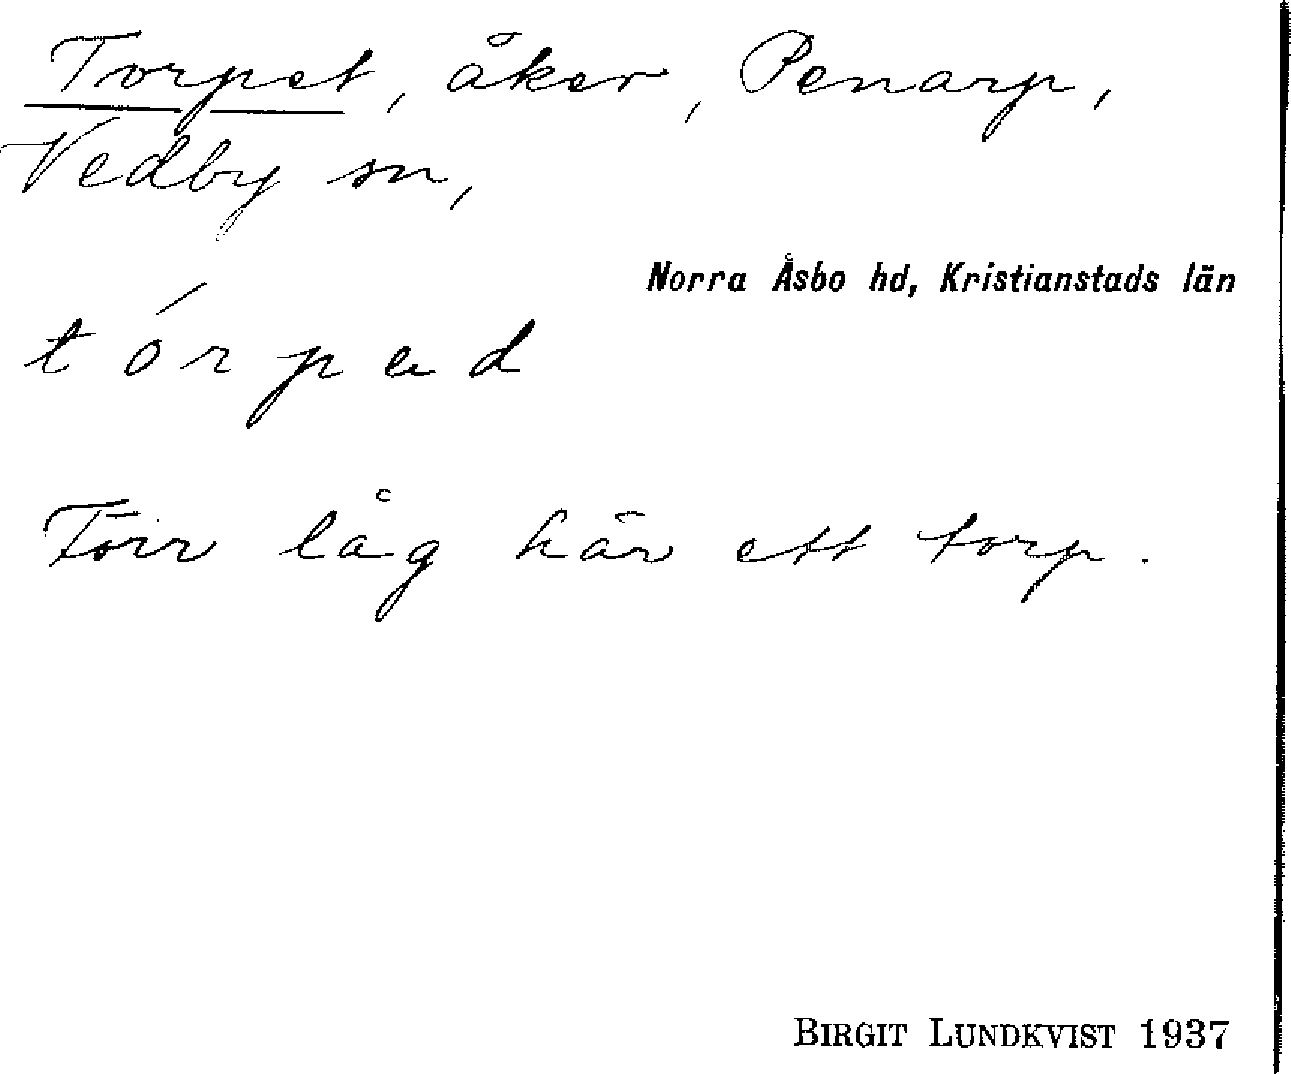 Torpet, åker, Penarp,
Vedby sn,
Norra Åsbo hd, Kristianstads län
tórpad
Förr låg här ett torp.
BIRGIT LUNDKVIST 1937